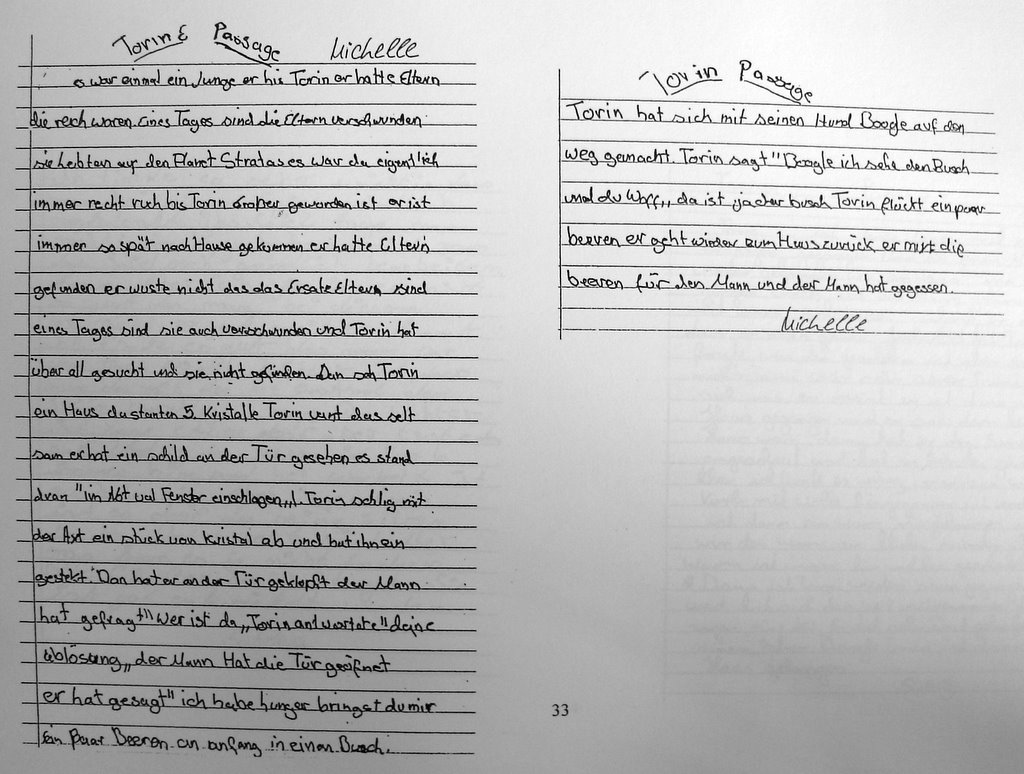 Torins Passage Michelle
es war einmal ein Junge er his Torin er hatte Eltern
die reich waren. Eines Tages sind die Eltern verschwunden
sie lebten auf den Planet Stratas es war da eigentlich
immer recht ruch bis Torin Großer geworden ist er ist
immer so spät nach Hause gekommen er hatte Eltern
gefunden er wuste nicht das das Ersatz Eltern sind
eines Tages sind sie auch verschwunden und Torin hat
über all gesucht und sie nicht gefunden. Dan sah Torin
ein Haus da stanten 5. Kristalle Torin das selt
sam er hat ein schild an der Tür gesehen es stand
dran "im Fenster einschlagen„! Torin schlig mit
der Axt ein stück von Kristal ab und hat ihn ein
gestekt. Dan hat er an der Tür geklopft der Mann
hat gefragt" Wer ist da„ Torin antwortete" deine
ablösung„ der Mann Hat die Tür geöfnet
er hat gesagt" ich habe hunger bringst du mir
ein paar Beeren an anfang in einen Busch.
Torin Passage
Torin hat sich mit seinen Hund Boogle auf den
weg gemacht. Torin sagt" Boogle ich sehe den Busch
und du Waff„ da ist ja der busch Torin flückt ein paar
beeren er geht wieder zum Haus zurück er die
beeren für den Mann und der Mann hat gegessen.
Michelle
33